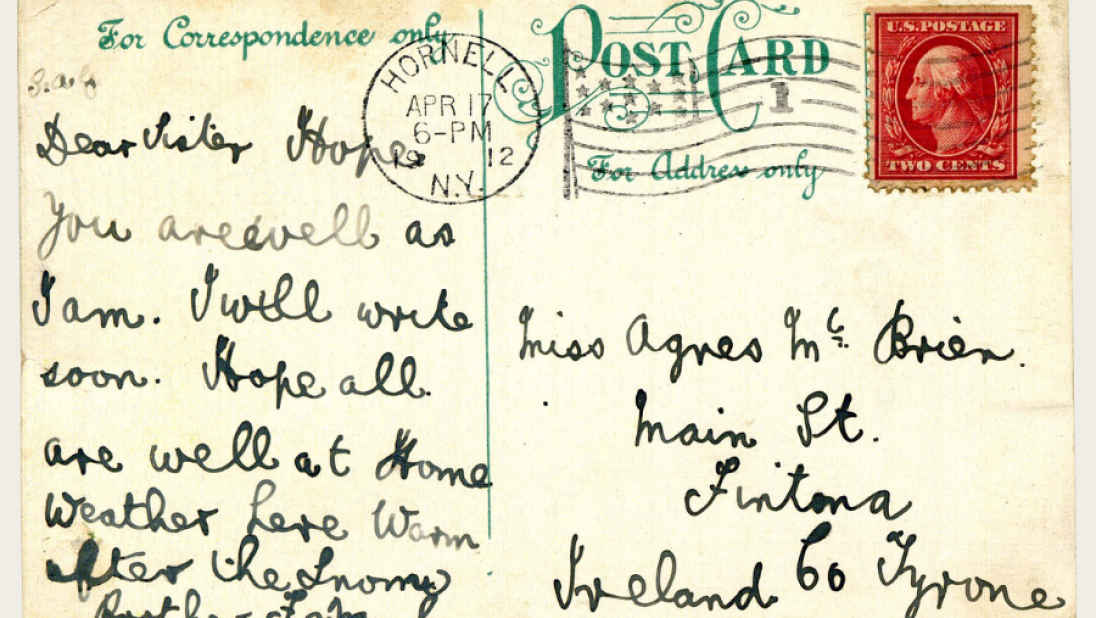 For Correspondence only
POST CARD
For Address only
HORNELL
APR 17
6-PM
19 12
N.Y.
1
U.S. POSTAGE
TWO CENTS
Dear Sister Hope
You are well as
I am. I will write
soon. Hope all.
are well at Home
Weather here Warm
After the
Miss Agnes Mc. Brien.
Main St.
Fintona
Ireland Co Tyrone